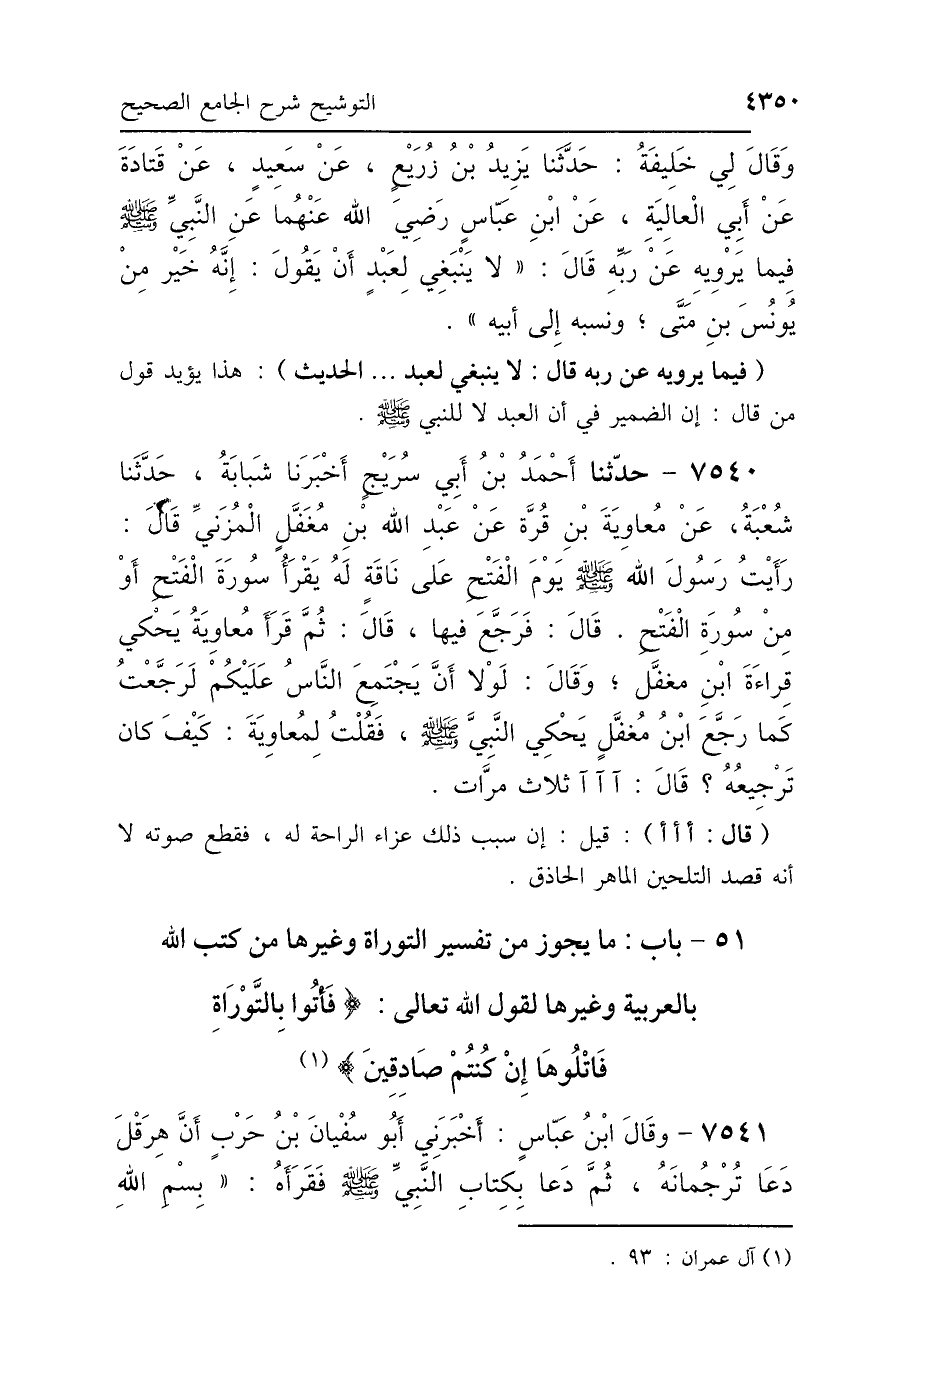 ٤٣٥٠ التوشيح شرح الجامع الصحيح
وَقَالَ لِي خَلِيفَةُ : حَدَّثَنا يَزِيدُ بْنُ زُرَيْعٍ ، عَنْ سَعِيدٍ ، عَنْ قَتادَةَ
عَنْ أَبِي الْعالِيَةِ ، عَنْ ابْنِ عَبّاسٍ رَضِيَ الله عَنْهُما عَنِ النَّبِيِّ ﷺ
فِيما يَرْوِيهِ عَنْ رَبِّهِ قَالَ : « لا يَنْبَغِي لِعَبْدٍ أَنْ يَقُولَ : إِنَّهُ خَيْر مِنْ
يُونُسَ بنِ مَتَّى ؛ ونسبه إلى أبيه » .
( فيما يرويه عن ربه قال : لا ينبغي لعبد ... الحديث ) : هذا يؤيد قول
من قال : إن الضمير في أن العبد لا للنبي ﷺ .
٧٥٤٠ - حدّثنا أَحْمَدُ بْنُ أَبِي سُرَيْجٍ أَخْبَرَنَا شَبابَةُ ، حَدَّثَنا
شُعْبَةُ، عَنْ مُعاوِيَةَ بْنِ قُرَّة عَنْ عَبْدِ الله بْنِ مُغَفَّلٍ الْمُزَنيِّ قَالَ :
رَأَيْتُ رَسُولَ الله ﷺ يَوْمَ الْفَتْحِ عَلى نَاقَةٍ لَهُ يَقْرَأُ سُورَةَ الْفَتْحِ أَوْ
مِنْ سُورَةِ الْفَتْحِ . قَالَ : فَرَجَّعَ فيها ، قَالَ : ثُمَّ قَرَأَ مُعاوِيَةُ يَحْكي
قِراءَةَ ابْنِ مغفَّل ؛ وَقَالَ : لَوْلا أَنَّ يَجْتَمِعَ النَّاسُ عَلَيْكُمْ لَرَجَّعْتُ
كَما رَجَّعَ ابْنُ مُغَفَّلٍ يَحْكِي النَّبِيَّ ﷺ ، فَقُلْتُ لِمُعاوِيَةَ : كَيْفَ كان
تَرْجِيعُهُ ؟ قَالَ : آ آ آ ثلاث مرَّات .
( قال : أ أ أ ) : قيل : إن سبب ذلك عزاء الراحة له ، فقطع صوته لا
أنه قصد التلحين الماهر الحاذق .
٥١ - باب : ما يجوز من تفسير التوراة وغيرها من كتب الله
بالعربية وغيرها لقول الله تعالى : ﴿ فَأْتُوا بِالتَّوْرَاةِ
فَاتْلُوهَا إِنْ كُنْتُمْ صَادِقِينَ ﴾ (١)
٧٥٤١ - وقَالَ ابْنُ عَبّاسٍ : أَخْبَرَنِي أَبُو سُفْيانَ بْنُ حَرْبٍ أَنَّ هِرَقْلَ
دَعَا تُرْجُمانَهُ ، ثُمَّ دَعا بِكِتابِ النَّبِيِّ ﷺ فَقَرَأَهُ : « بِسْمِ اللهِ
(١) آل عمران : ٩٣ .